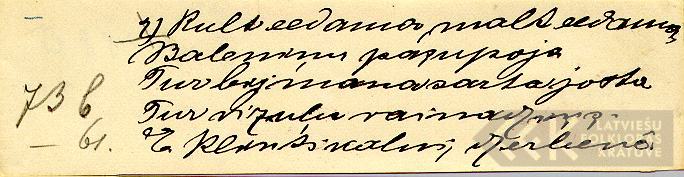 2) Kult eedama, malt eedama,
Baleninu pagupoja
Tur bij mana sarta josta
Tur vizulu vainadziņš.
73 b
— 61.
E. Klēnšikalns, Jērbenē
LATVIEŠU
FOLKLORAS
KRĀTUVE